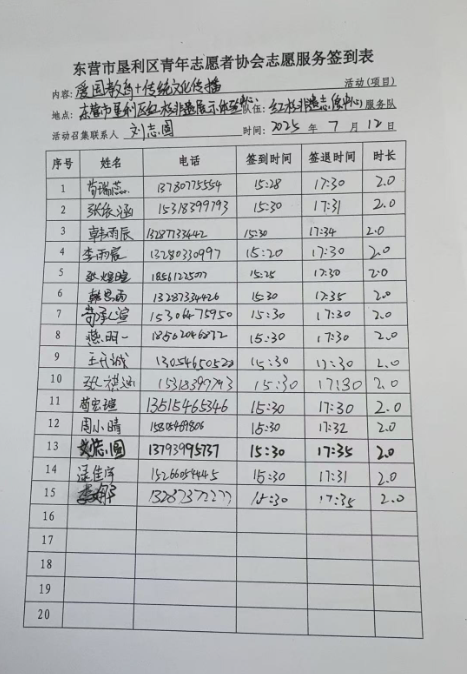 东营市垦利区青年志愿者协会志愿服务签到表
内容: 爱国教育+传统文化传播 活动(项目)
地点: 东营市垦利区红核非遗展示体验中心 队伍: 服务队
活动召集联系人 刘志圆 时间: 2025 年 7 月 12 日
序号 姓名 电话 签到时间 签退时间 时长
1 13780775554 15:28 17:30 2.0
2 张依涵 15318399793 15:30 17:31 2.0
3 韩雨辰 13287333442 15:30 17:34 2.0
4 李雨宸 13280330997 15:20 17:30 2.0
5 15:25 17:30 2.0
6 13287334426 15:30 17:35 2.0
7 15306475950 15:30 17:30 2.0
8 15:30 17:30 2.0
9 15:30 17:30 2.0
10 张祺涵 15318399793 15:30 17:30 2.0
11 13515465346 15:30 17:30 2.0
12 周小晴 15:30 17:32 2.0
13 刘志圆 13793995737 15:30 17:35 2.0
14 15266054445 15:30 17:31 2.0
15 15:30 17:35 2.0
16
17
18
19
20